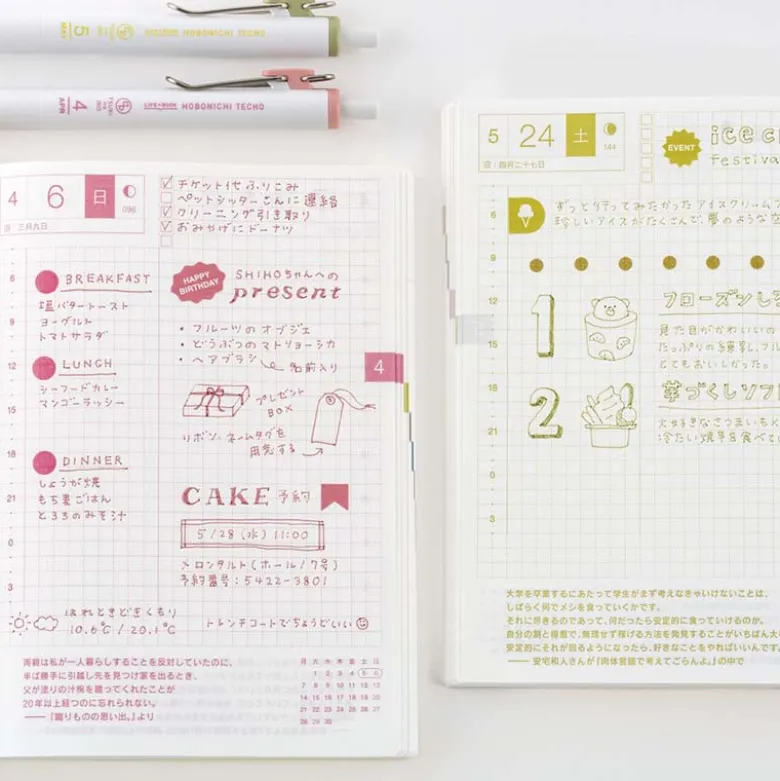 5
MAY
LIFE✦BOOK HOBONICHI TECHO
4
APR
LIFE✦BOOK HOBONICHI TECHO
4
6
日
096
旧 三月九日
チケット代ふりこみ
ペットシッターさんに連絡
クリーニング引き取り
おみやげにドーナツ
6
9
12
15
18
21
0
3
BREAKFAST
塩バタートースト
ヨーグルト
トマトサラダ
LUNCH
シーフードカレー
マンゴーラッシー
DINNER
しょうが焼
もち麦ごはん
とろろのみそ汁
HAPPY
BIRTHDAY
SHIHOちゃんへの
present
・フルーツのオブジェ
・どうぶつのマトリョーシカ
・ヘアブラシ
名前入り
プレゼント
BOX
リボン、ネームタグを
用意する
CAKE 予約
5/28(水) 11:00
メロンタルト(ホール/7号)
予約番号:5422-3801
はれときどきくもり
10.6℃/20.1℃
トレンチコートでちょうどいい
4
両親は私が一人暮らしすることを反対していたのに、
半ば勝手に引越し先を見つけ家を出るとき、
父が塗りの汁椀を贈ってくれたことが
20年以上経つのに忘れられない。
——『贈りものの思い出。』より
月 火 水 木 金 土 日
1 2 3 4 5 6
7 8 9 10 11 12 13
14 15 16 17 18 19 20
21 22 23 24 25 26 27
28 29 30
5
24
土
144
旧 四月二十七日
EVENT
ice
Festiva
6
9
12
15
18
21
0
3
ずっと行ってみたかったアイスクリーム
珍しいアイスがたくさんで、夢のような
1
フローズンし
見た目がかわいいの
たっぷりの練乳、フル
とてもおいしかった。
2
芋づくしソフ
火が好きなさつまいも
冷たい焼芋を食べ
大学を卒業するにあたって学生がまず考えなきゃいけないことは、
しばらく何でメシを食っていくかです。
それに尽きるのであって、何だったら安定的に食っていけるのか。
自分の割と得意で、無理せず稼げる方法を発見することがいちばん大
安定的にそれが回るようになったら、好きなことをやればいいんです。
——安宅和人さんが『肉体言語で考えてごらんよ。』の中で